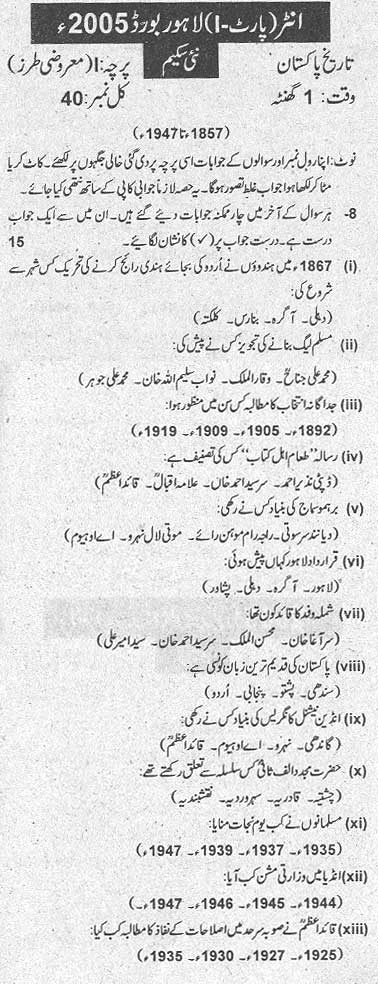 انٹر (پارٹ-I) لاہور بورڈ 2005ء
تاریخ پاکستان نئی سکیم پرچہ:I (معروضی طرز)
وقت: 1 گھنٹہ کل نمبر: 40
(1857ء تا 1947ء)
نوٹ: اپنا رول نمبر اور سوالوں کے جوابات اسی پرچہ پر دی گئی خالی جگہوں پر لکھئے۔ کاٹ کر یا
مٹا کر لکھا ہوا جواب غلط تصور ہوگا۔ یہ حصہ لازماً جوابی کاپی کے ساتھ نتھی کیا جائے۔
8- ہر سوال کے آخر میں چار ممکنہ جوابات دیئے گئے ہیں۔ ان میں سے ایک جواب
درست ہے۔ درست جواب پر (✓) کا نشان لگایئے۔ 15
(i) 1867ء میں ہندوؤں نے اُردو کی بجائے ہندی رائج کرنے کی تحریک کس شہر سے
شروع کی:
(دہلی۔ آگرہ۔ بنارس۔ کلکتہ)
(ii) مسلم لیگ بنانے کی تجویز کس نے پیش کی:
(محمد علی جناحؒ۔ وقار الملک۔ نواب سلیم اللہ خان۔ محمد علی جوہر)
(iii) جداگانہ انتخاب کا مطالبہ کس سن میں منظور ہوا:
(1892ء۔ 1905ء۔ 1909ء۔ 1919ء)
(iv) رسالہ "طعام اہل کتاب" کس کی تصنیف ہے:
(ڈپٹی نذیر احمد۔ سرسید احمد خاں۔ علامہ اقبالؒ۔ قائد اعظمؒ)
(v) برہمو سماج کی بنیاد کس نے رکھی:
(دیانند سرسوتی۔ راجہ رام موہن رائے۔ موتی لال نہرو۔ اے او ہیوم)
(vi) قرارداد لاہور کہاں پیش ہوئی:
(لاہور۔ آگرہ۔ دہلی۔ پشاور)
(vii) شملہ وفد کا قائد کون تھا:
(سر آغا خان۔ محسن الملک۔ سرسید احمد خان۔ سید امیر علی)
(viii) پاکستان کی قدیم ترین زبان کونسی ہے:
(سندھی۔ پشتو۔ پنجابی۔ اُردو)
(ix) انڈین نیشنل کانگریس کی بنیاد کس نے رکھی:
(گاندھی۔ نہرو۔ اے او ہیوم۔ قائد اعظمؒ)
(x) حضرت مجدد الف ثانیؒ کس سلسلہ سے تعلق رکھتے تھے:
(چشتیہ۔ قادریہ۔ سہروردیہ۔ نقشبندیہ)
(xi) مسلمانوں نے کب یوم نجات منایا:
(1935ء۔ 1937ء۔ 1939ء۔ 1947ء)
(xii) انڈیا میں وزارتی مشن کب آیا:
(1944ء۔ 1945ء۔ 1946ء۔ 1947ء۔)
(xiii) قائد اعظمؒ نے صوبہ سرحد میں اصلاحات کے نفاذ کا مطالبہ کب کیا:
(1925ء۔ 1927ء۔ 1930ء۔ 1935ء)